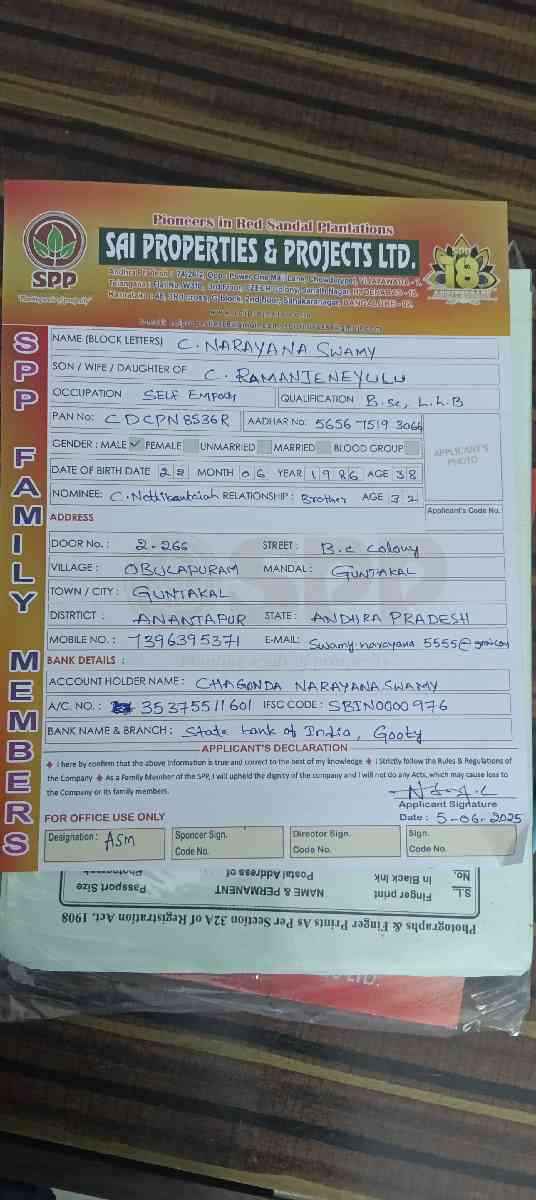 Pioneers in Red Sandal Plantations
SAI PROPERTIES & PROJECTS LTD.
SPP
SPP
18
SPP FAMILY MEMBERS
NAME (BLOCK LETTERS) C. NARAYANA SWAMY
SON / WIFE / DAUGHTER OF C. RAMANJENEYULU
OCCUPATION SELF EMPOLY QUALIFICATION B.Sc, L.L.B
PAN No: CDCPN8536R AADHAR No: 5656 7519 3066
GENDER : MALE ✓ FEMALE UNMARRIED MARRIED BLOOD GROUP
APPLICANT'S PHOTO
DATE OF BIRTH DATE 22 MONTH 06 YEAR 1986 AGE 38
NOMINEE: C. RELATIONSHIP : Brother AGE 32
Applicant's Code No.
ADDRESS
DOOR No. : 2-266 STREET : B.C Colony
VILLAGE : OBULAPURAM MANDAL : GUNTAKAL
TOWN / CITY : GUNTAKAL
DISTRTICT : ANANTAPUR STATE : ANDHRA PRADESH
MOBILE NO. : 7396395371 E-MAIL: Swamy.narayana 5555@gmail.com
BANK DETAILS :
ACCOUNT HOLDER NAME : CHAGONDA NARAYANA SWAMY
A/C. NO. : 35375511601 IFSC CODE : SBIN0000976
BANK NAME & BRANCH : State bank of India, Gooty
APPLICANT'S DECLARATION
I here by confirm that the above information is true and correct to the best of my knowledge I Strictly follow the Rules & Regulations of
the Company As a Family Member of the SPP, I will upheld the dignity of the company and I will not do any Acts, which may cause loss to
the Company or its family members.
Applicant Signature
FOR OFFICE USE ONLY Date : 5-06-2025
Designation : ASM Sponcer Sign. Director Sign. Sign.
Code No. Code No. Code No.
Photographs & Finger Prints As Per Section 32A of Registration Act, 1908
SL. No. Finger print In Black Ink NAME & PERMANENT Postal Address of Passport Size Photograph